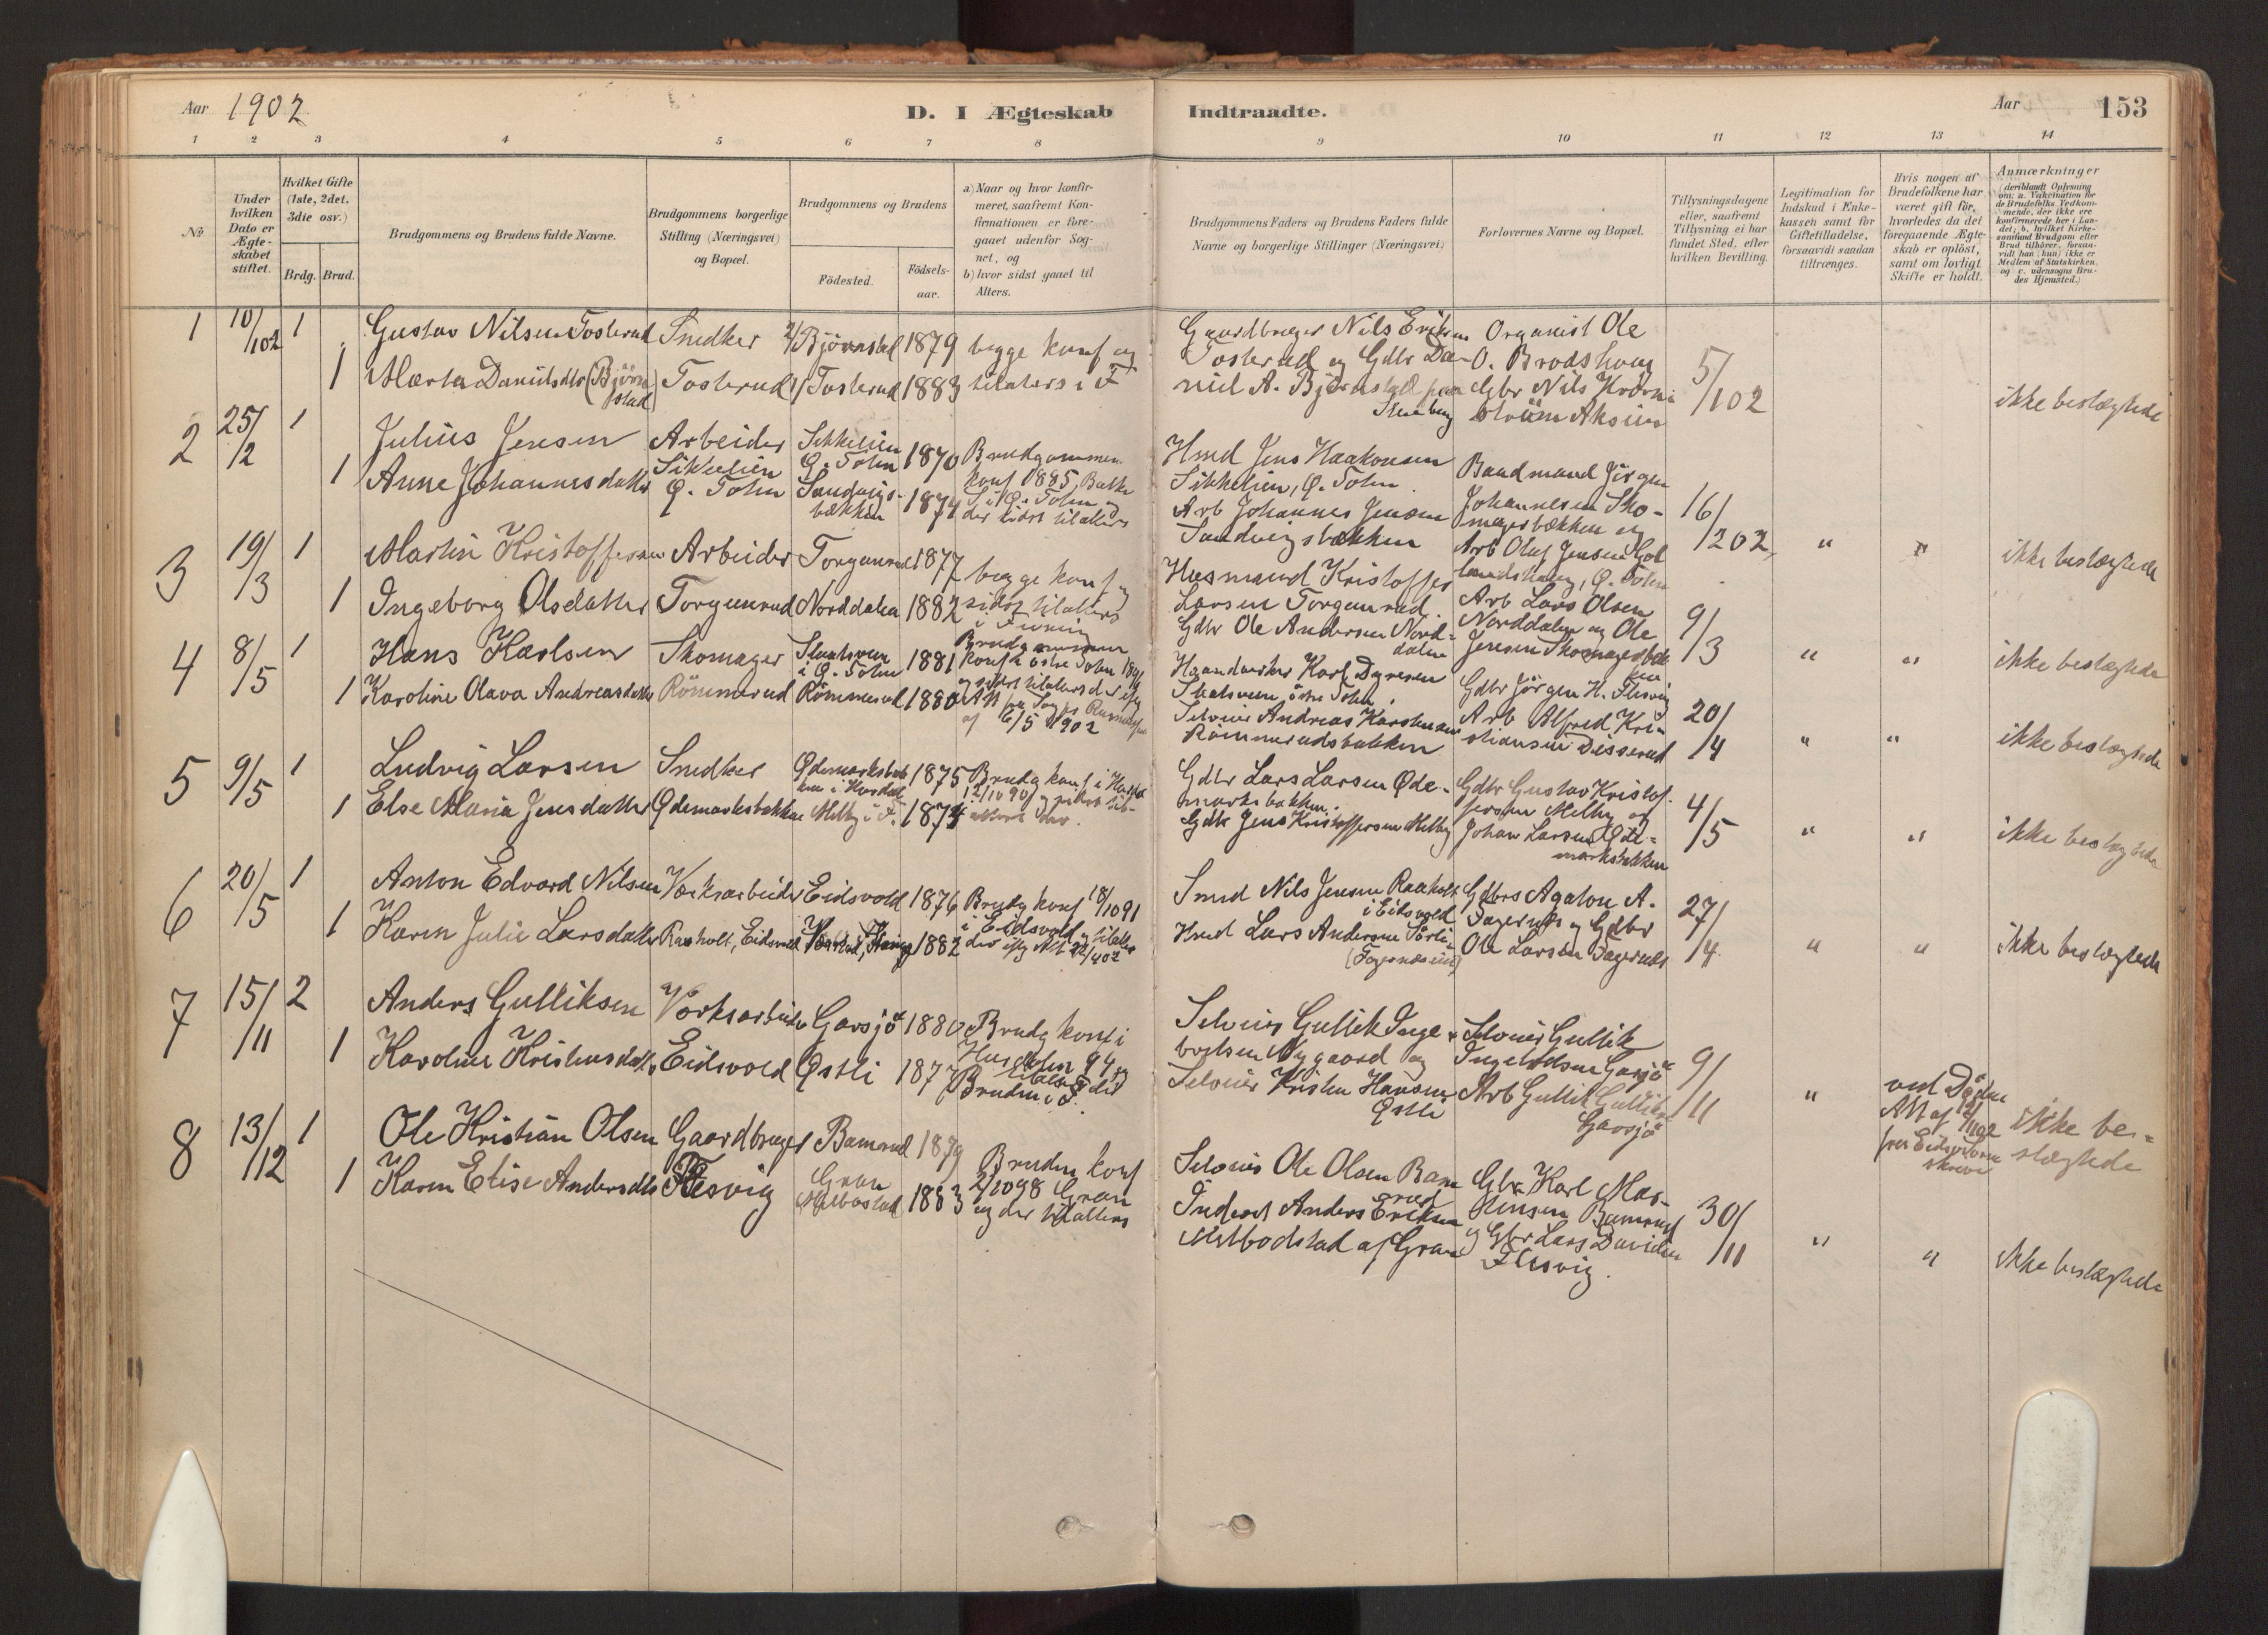 Aar 1902
D. I Ægteskab Indtraadte.
Aar 153
1 2 3 4 5 6 7 8 9 10 11 12 13 14
No.
Under hvilken Dato er Ægteskabet stiftet.
Hvilket Gifte (1ste, 2det, 3die osv.)
Brdg. Brud.
Brudgommens og Brudens fulde Navne.
Brudgommens borgerlige Stilling (Næringsvei) og Bopæl.
Brudgommens og Brudens
Födested.
Födselsaar.
a) Naar og hvor konfirmeret, saafremt Konfirmationen er foregaaet udenfor Sognet, og
b) hvor sidst gaaet til Alters.
Brudgommens Faders og Brudens Faders fulde Navne og borgerlige Stillinger (Næringsvei)
Forlovernes Navne og Bopæl.
Tillysningsdagene eller, saafremt Tillysning ei har fundet Sted, efter hvilken Bevilling.
Legitimation for Indskud i Enkekassen samt for Giftetilladelse, forsaavidt saadan tiltrænges.
Hvis nogen af Brudefolkene har været gift för, hvorledes da det foregaaende Ægteskab er oplöst, samt om lovligt Skifte er holdt.
Anmærkninger
(deriblandt Oplysning om: a. Vakcination for de Brudefolks Vedkommende, der ikke ere konfirmerede her i Landet; b. hvilket Kirkesamfund Brudgom eller Brud tilhörer, forsaavidt han (hun) ikke er Medlem af Statskirken. og c. udensogns Brudes Hjemsted.)
1 10/102 1 Gustav Nilsen Tosterud Snedker Björnstad 1879 begge konf og
1 Marta Danielsdtr (Björnstad) Tosterud Tosterud 1883 tilalters i F
Gaardbruger Nils Eriksen
Tosterud og Gdbr Daniel A. Björnstad
Organist Ole
O. Brodshoug
Gbr Nils
5/102 ikke beslægtede
2 25/2 1 Julius Jensen Arbeider Sikkelien Ø. Toten 1870 Brudgommen
1 Anne Johannesdatter Sikkelien Ø. Toten Sandvigsbækken 1874 konf 1885, Balke
i Ø. Toten og
der sidst tilalters
Hmd Jens Haakonsen
Sikkelien, Ø. Toten.
Arb Johannes Jensen
Sandvigsbækken
Baadmand Jörgen
Johannesen Skomagerbækken og
Arb Oluf Jensen
Ø. Toten
16/202 " " ikke beslægtede
3 19/3 1 Martin Kristoffersen Arbeider Torgunrud 1877 begge konf og
1 Ingeborg Olsdatter Torgunrud Norddalen 1882 sidst tilalters
i Feiring
Husmand Kristoffer
Larsen Torgunrud.
Gdbr Ole Andersen Norddalen
Arb Lars Olsen
Norddalen og Ole
Jensen Skomagerbækken
9/3 " " ikke beslægtede
4 8/5 1 Hans Karlsen Skomager i Ø. Toten 1881 Brudgommen
konf i östre Toten
1 Karoline Olava Andreasdatter Römmerud Römmerud 1880 og sidst tilalters der
Att fra Sogn
af 6/5 1902
Haandverker Karl Dyresen
östre Toten.
Selveier Andreas Karstensen
Römmerudsbakken
Gdbr Jörgen H. Flesvig
Arb Alfred Kristiansen Disserud
20/4 " " ikke beslægtede
5 9/5 1 Ludvig Larsen Snedker Ødemarksbakken i Hurdal 1875 Brudg konf i Hurdal
1 Else Maria Jensdatter Ødemarksbakken Melby i F. 1874 12/10 90 og sidst tilalters der.
Gdbr Lars Larsen Ødemarksbakken.
Gdbr Jens Kristoffersen Melby
Gdbr Gustav Kristoffersen Melby og
Johan Larsen Ødemarksbakken
4/5 " " ikke beslægtede
6 20/5 1 Anton Edvard Nilsen Værksarbeider Eidsvold 1876 Brudg konf 18/10 91
1 Karen Julie Larsdatter Raaholt, Eidsvold 1882 i Eidsvold og tilalters
der iflg Att 22/4 02
Smed Nils Jensen Raaholt
i Eidsvold
Hmd Lars Andersen Sörli
(Fagernæseie)
Gdbrs Agaton A.
Fagernæs og Gdbr
Ole Larsen Fagernæs
27/4 " " ikke beslægtede
7 15/11 2 Anders Gulliksen Værksarbeider Garsjö 1880 Brudg konf i
1 Karoline Kristensdatter Eidsvold Østli 1877 94 og
tilalters der
Bruden i F.
Selveier Gullik Ingebretsen Nygaard og
Selveier Kristen Hansen
Østli
Selveier Gullik
Ingebretsen Garsjö
Arb Gullik Gulliksen
Garsjö
9/11 " ved Döden
Att af
fra Eidsvold
ikke beslægtede
8 13/12 1 Ole Kristian Olsen Gaardbruger Bamrud 1879 Bruden konf
1 Karen Elise Andersdtr Flesvig Gran Melbostad 1883 2/10 98 Gran
og der tilalters
Selveier Ole Olsen Bamrud
Inderst Anders Eriksen
Melbostad af Gran
Gbr Karl Martinsen Bamrud
og Gbr Lars Davidsen
Flesvig.
30/11 " " ikke beslægtede